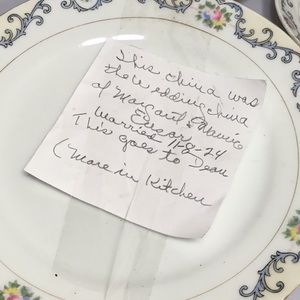 This china was
the wedding china
of Margaret &
Edgar
married 11-8-24
This goes to Dean
(More in Kitchen